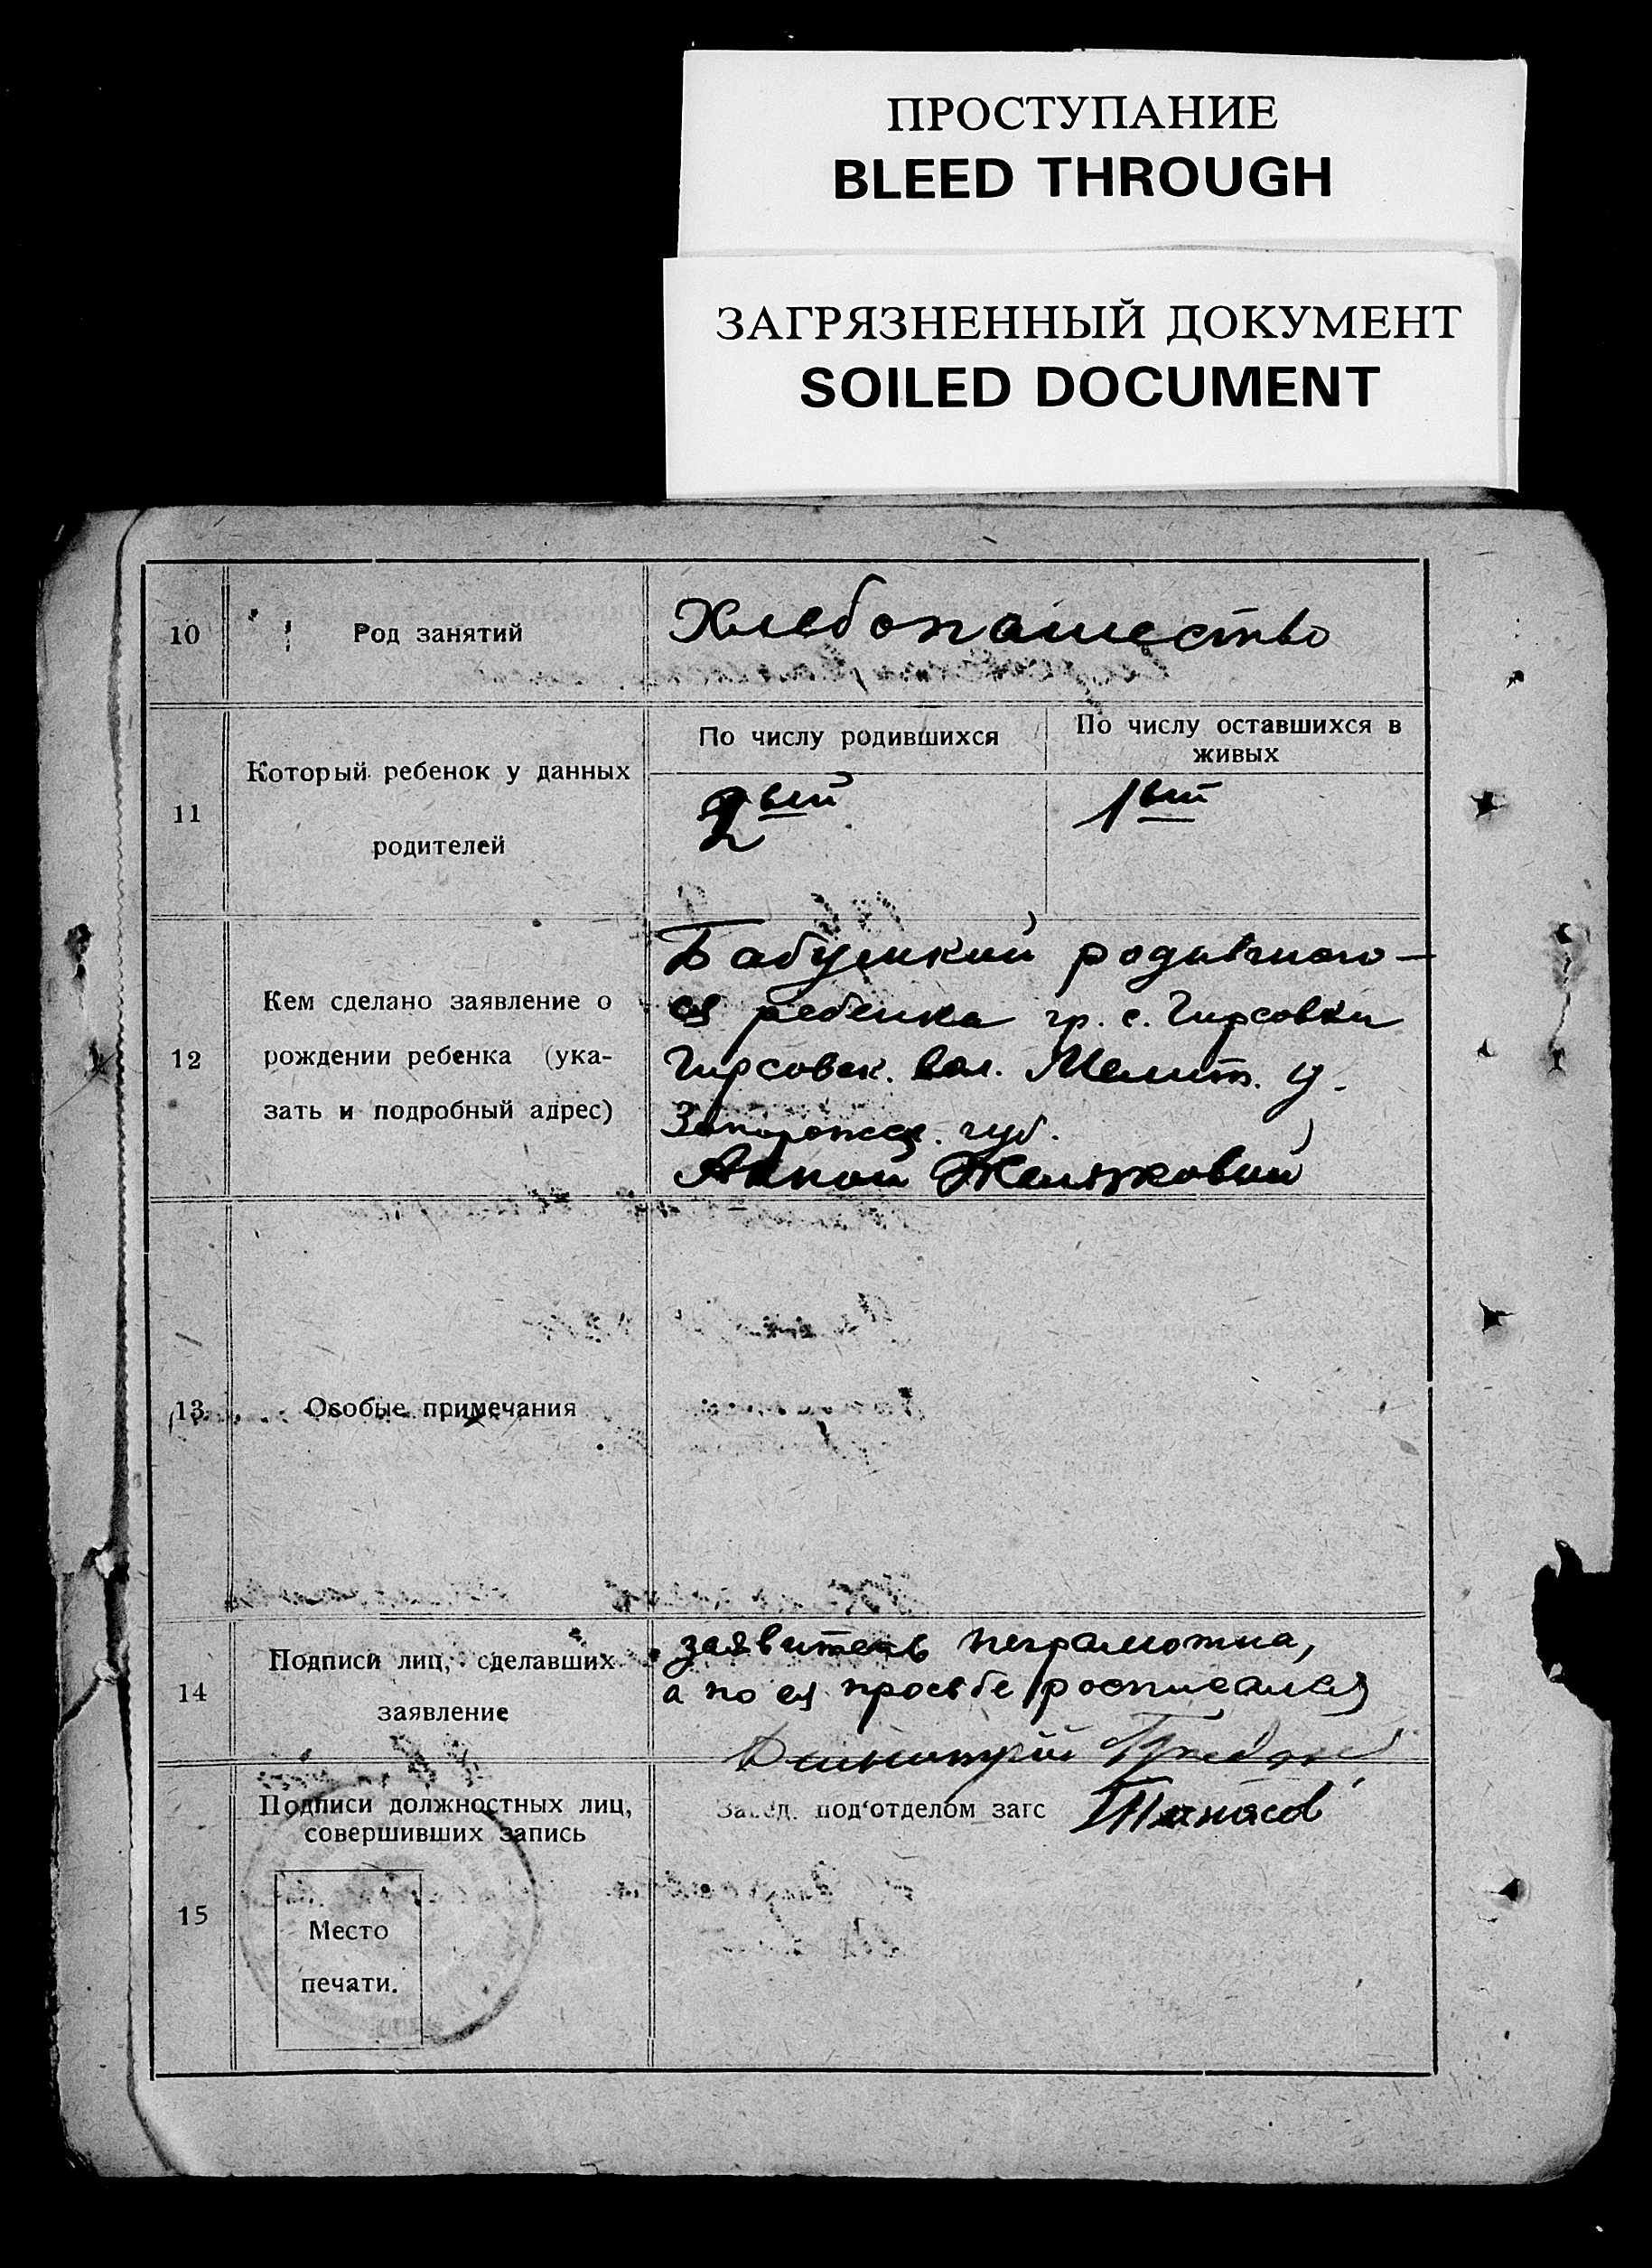 ПРОСТУПАНИЕ
BLEED THROUGH
ЗАГРЯЗНЕННЫЙ ДОКУМЕНТ
SOILED DOCUMENT
10
Род занятий
Хлебопашество
11
Который ребенок у данных
родителей
По числу родившихся
По числу оставшихся в
живых
2ый
1ый
12
Кем сделано заявление о
рождении ребенка (ука-
зать и подробный адрес)
Бабушкой родившаго-
ся ребенка гр. с. Гирсовки
Гирсовск. вол. Мелит. у.
Запорожск. губ.
Анной Желязковой
13
Особые примечания
14
Подписи лиц, сделавших
заявление
заявитель неграмотна,
а по ея просьбе росписался
15
Подписи должностных лиц,
совершивших запись
Место
печати.
Завед. под'отделом загс Танасов